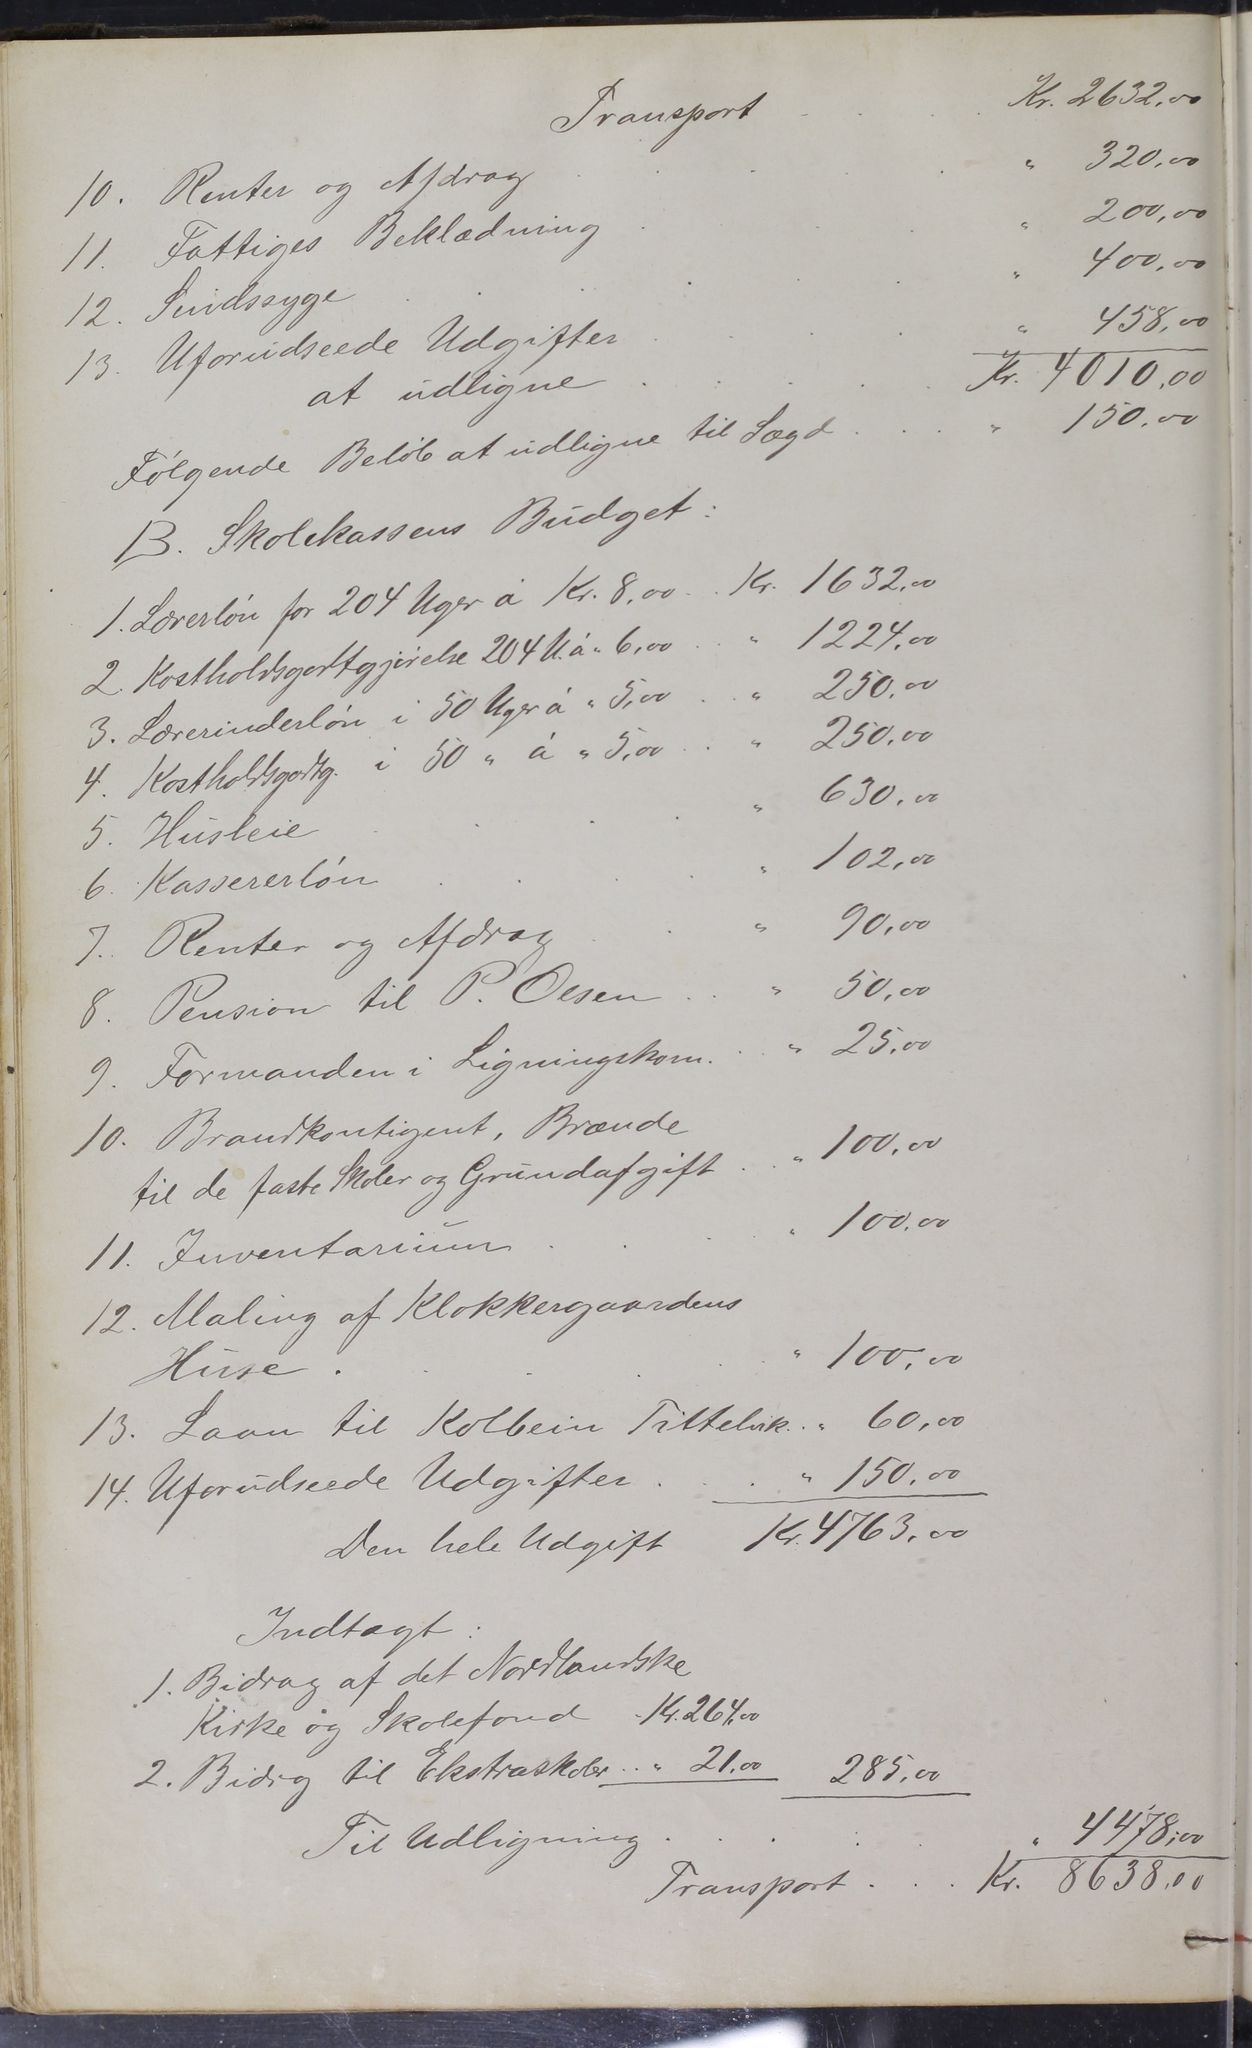 Transport . . . Kr. 2632,00
10. Renter og Afdrag . . . " 320,00
11. Fattiges Beklædning . . . " 200,00
12. Sindssyge . . . . " 400,00
13. Uforudseede Udgifter . . . " 458,00
at udligne . . . . . Kr. 4010,00
Følgende Beløb at udligne til Lægd . . . " 150,00
B. Skolekassens Budget:
1. Lærerløn for 204 Uger á Kr. 8,00 . . Kr. 1632,00
2. Kostholdsgodtgjørelse 204 U. á " 6,00 . . " 1224,00
3. Lærerinderløn i 50 Uger á " 5,00 . . " 250,00
4. Kostholdsgodtg. i 50 " á " 5,00 . . " 250,00
5. Husleie . . . . " 630,00
6. Kassererløn . . . . " 102,00
7. Renter og Afdrag . . " 90,00
8. Pension til P. Olsen . . " 50,00
9. Formanden i Ligningskom. . . " 25,00
10. Brandkontigent, Brænde
til de faste Skoler og Grundafgift . . " 100,00
11. Inventarium . . . . " 100,00
12. Maling af Klokkergaardens
Huse . . . . " 100,00
13. Laan til Kolbein Tittelvik . . " 60,00
14. Uforudseede Udgifter . . " 150,00
Den hele Udgift Kr. 4763,00
Indtægt:
1. Bidrag af det Nordlandske
Kirke og Skolefond - Kr. 264,00
2. Bidrg til Ekstraskoler . . " 21,00 285,00
Til Udligning . . . . . " 4478,00
Transport . . . Kr. 8638,00